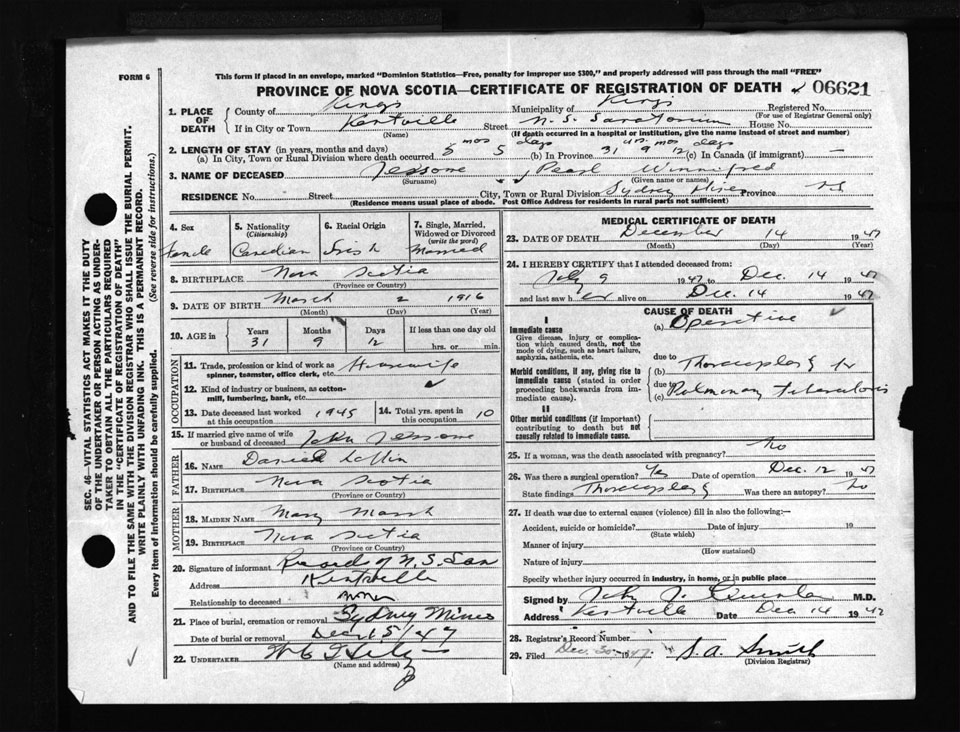 FORM 6
This form if placed in an envelope, marked "Dominion Statistics—Free, penalty for improper use $300," and properly addressed will pass through the mail "FREE"
PROVINCE OF NOVA SCOTIA—CERTIFICATE OF REGISTRATION OF DEATH 06621
1. PLACE OF DEATH County of Kings Municipality of Kings Registered No.
(For use of Registrar General only)
If in City or Town Kentville Street N. S. Sanatorium House No.
(Name) (If death occurred in a hospital or institution, give the name instead of street and number)
2. LENGTH OF STAY (in years, months and days) mos days yrs mos days
(a) In City, Town or Rural Division where death occurred 5 5 (b) In Province 31 9 12 (c) In Canada (if immigrant) —
3. NAME OF DECEASED Jessome, Pearl Winnifred
(Surname) (Given name or names)
RESIDENCE No. Street City, Town or Rural Division Sydney Mines Province N S
(Residence means usual place of abode. Post Office Address for residents in rural parts not sufficient)
4. Sex 5. Nationality (Citizenship) 6. Racial Origin 7. Single, Married, Widowed or Divorced (write the word)
Female Canadian Irish Married
8. BIRTHPLACE Nova Scotia
(Province or Country)
9. DATE OF BIRTH March 2 1916
(Month) (Day) (Year)
10. AGE in Years Months Days If less than one day old
31 9 12 hrs. or min.
OCCUPATION
11. Trade, profession or kind of work as spinner, teamster, office clerk, etc. Housewife
12. Kind of industry or business, as cotton-mill, lumbering, bank, etc. ✓
13. Date deceased last worked at this occupation 1945 14. Total yrs. spent in this occupation 10
15. If married give name of wife or husband of deceased John Jessome
FATHER
16. NAME Daniel
17. BIRTHPLACE Nova Scotia
(Province or Country)
MOTHER
18. MAIDEN NAME Mary Marsh
19. BIRTHPLACE Nova Scotia
(Province or Country)
20. Signature of informant Records of N. S. San
Address Kentville
Relationship to deceased
21. Place of burial, cremation or removal Sydney Mines
Date of burial or removal Dec 15/47
22. UNDERTAKER
(Name and address)
MEDICAL CERTIFICATE OF DEATH
23. DATE OF DEATH December 14 1947
(Month) (Day) (Year)
24. I HEREBY CERTIFY that I attended deceased from:
July 9 1947 to Dec. 14 1947
and last saw her alive on Dec. 14 1947
CAUSE OF DEATH
I
Immediate cause (a) Operative
Give disease, injury or complication which caused death, not the mode of dying, such as heart failure, asphyxia, asthenia, etc.
due to
(b) Thoracoplasty for
Morbid conditions, if any, giving rise to immediate cause (stated in order proceeding backwards from immediate cause).
due to
(c) Pulmonary tuberculosis
II
Other morbid conditions (if important) contributing to death but not causally related to immediate cause.
25. If a woman, was the death associated with pregnancy? No
26. Was there a surgical operation? Yes Date of operation Dec. 12 1947
State findings Thoracoplasty Was there an autopsy? No
27. If death was due to external causes (violence) fill in also the following:—
Accident, suicide or homicide? Date of injury 19
(State which)
Manner of injury
(How sustained)
Nature of injury
Specify whether injury occurred in industry, in home, or in public place
Signed by John J. Quinlan M.D.
Address Kentville Date Dec 14 1947
28. Registrar's Record Number
29. Filed Dec. 30 1947. S. A. Smith
(Division Registrar)
SEC. 46—VITAL STATISTICS ACT MAKES IT THE DUTY
OF THE UNDERTAKER OR PERSON ACTING AS UNDER-
TAKER TO OBTAIN ALL THE PARTICULARS REQUIRED
IN THE "CERTIFICATE OF REGISTRATION OF DEATH"
AND TO FILE THE SAME WITH THE DIVISION REGISTRAR WHO SHALL ISSUE THE BURIAL PERMIT.
WRITE PLAINLY WITH UNFADING INK. THIS IS A PERMANENT RECORD.
Every item of information should be carefully supplied. (See reverse side for instructions.)